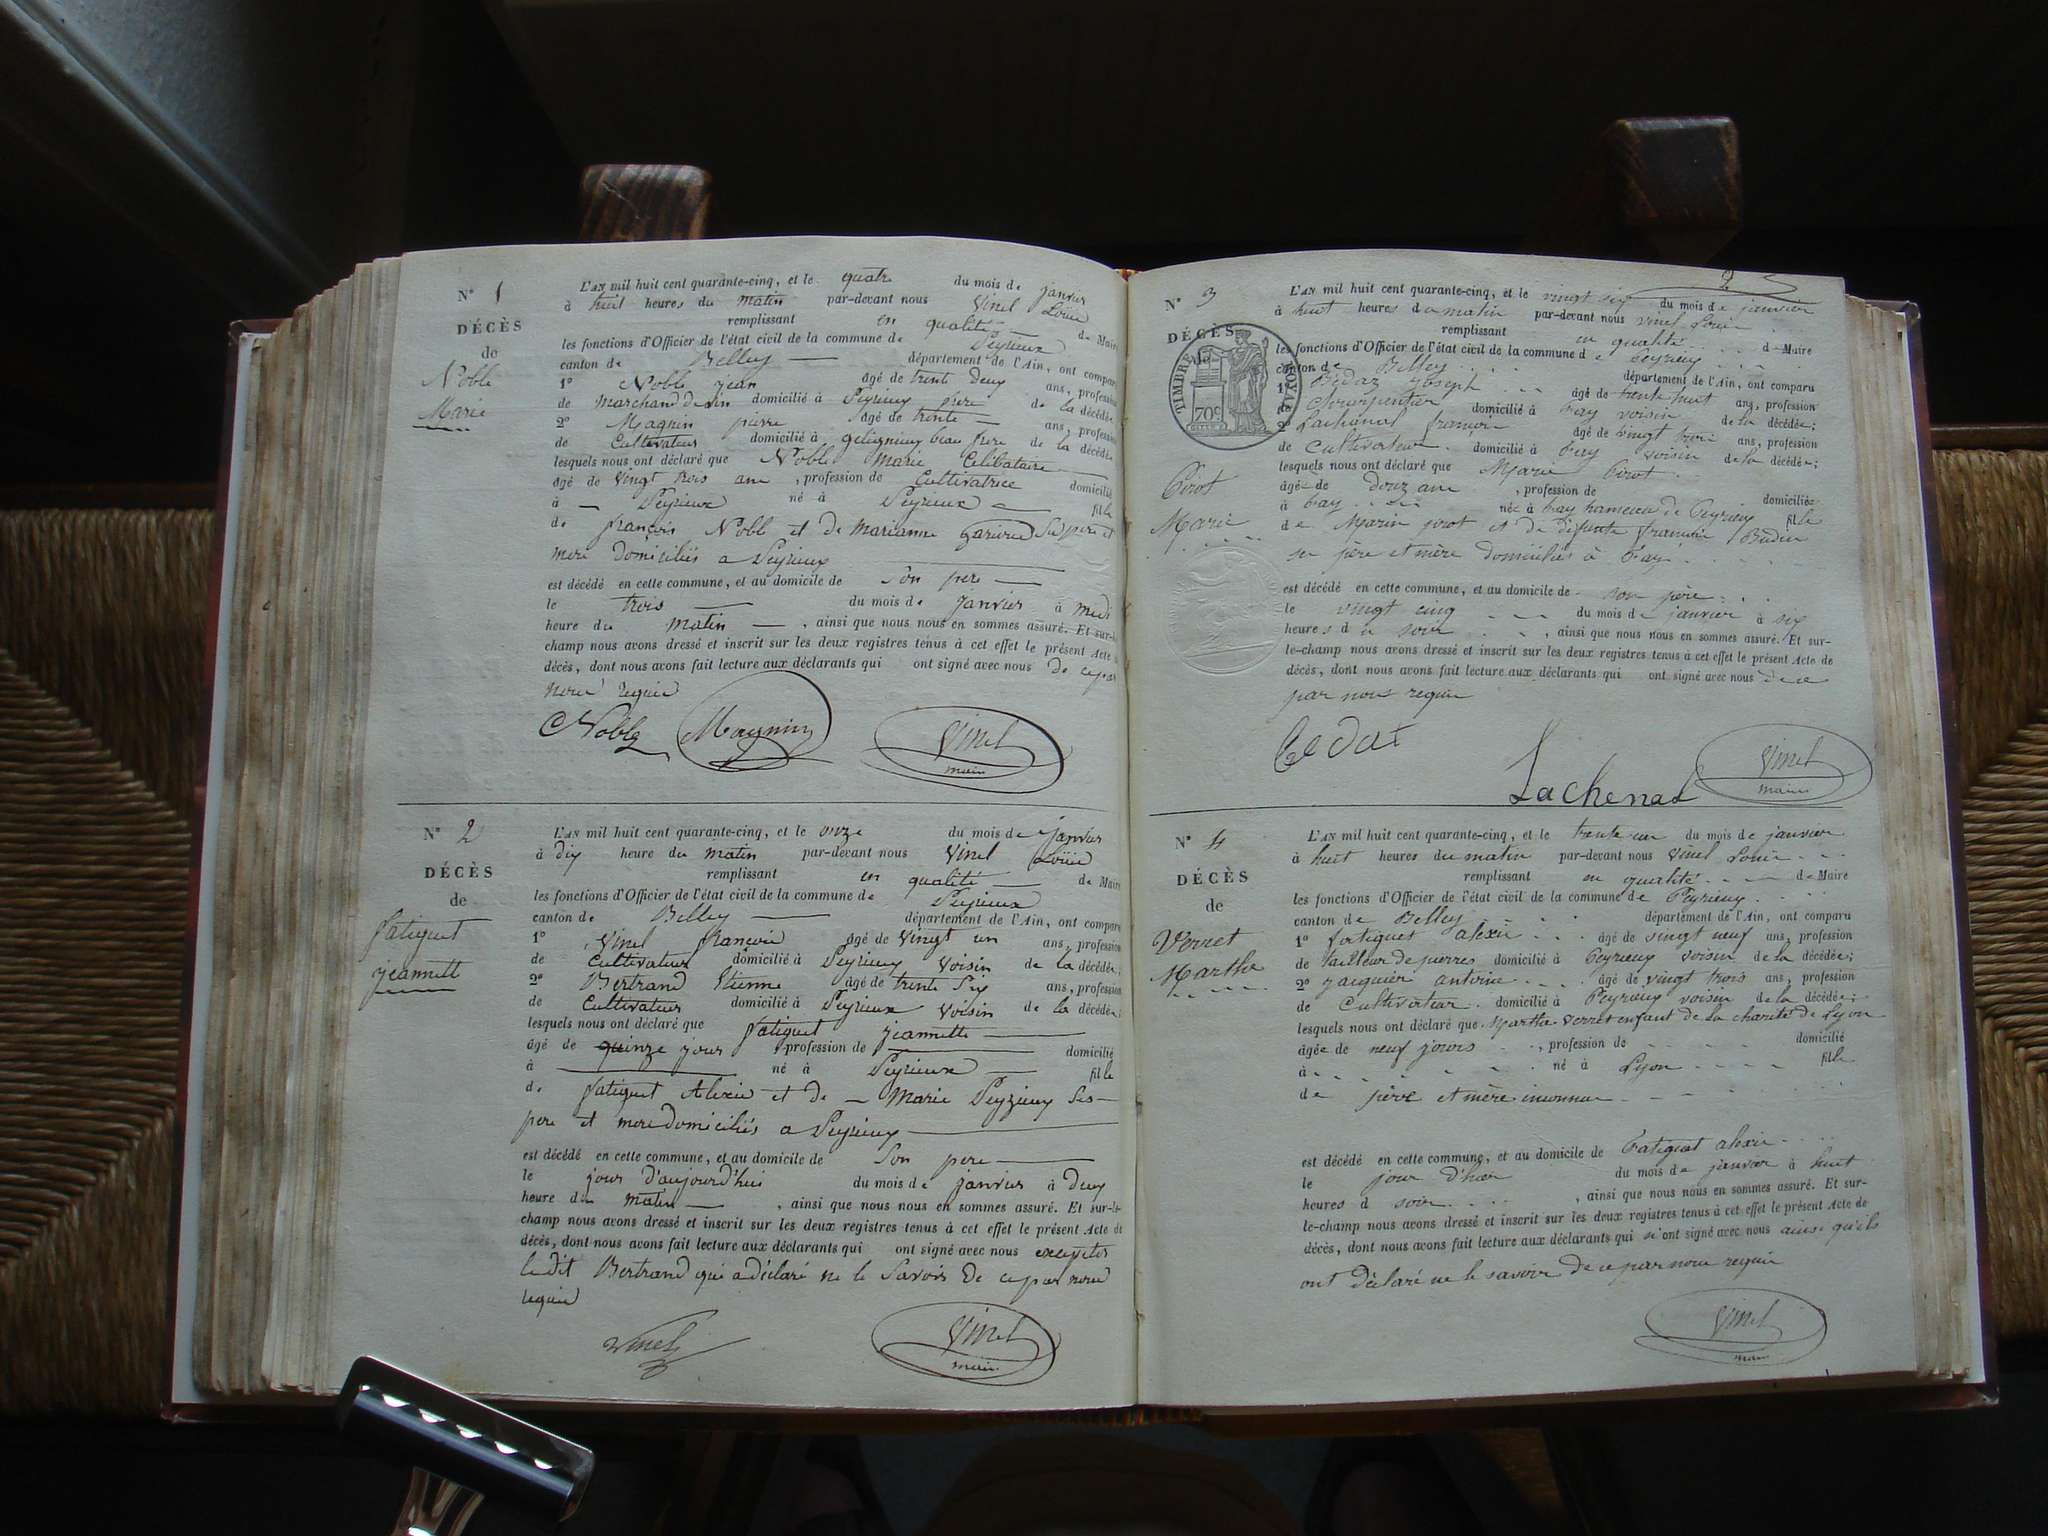 N° 1
DÉCÈS
de
Noble
Marie
L'AN mil huit cent quarante-cinq, et le quatre du mois de janvier
à huit heures du matin par-devant nous Vinel Loüis
remplissant en qualité de Maire
les fonctions d'Officier de l'état civil de la commune de Peyrieux
canton de Belley département de l'Ain, ont comparu
1° Noble jean âgé de trente deux ans, profession
de marchand domicilié à Peyrieux père de la décédée
2° Magnin pierre âgé de trente ans, profession
de Cultivateur domicilié à beau frere de la décédée
lesquels nous ont déclaré que Noble Marie Célibataire
âgé de vingt trois ans, profession de Cultivatrice domicilié
à Peyrieux né à Peyrieux fille
de françois Noble et de Marianne Ses pere et
mere domiciliés a Peyrieux
est décédé en cette commune, et au domicile de Son pere
le trois du mois de janvier à midi
heure du matin, ainsi que nous nous en sommes assuré. Et sur-le-
champ nous avons dressé et inscrit sur les deux registres tenus à cet effet le présent Acte de
décès, dont nous avons fait lecture aux déclarants qui ont signé avec nous de ce par
nous requis
Noble Magnin Vinel
maire
N° 2
DÉCÈS
de
fatiguet
jeannette
L'AN mil huit cent quarante-cinq, et le onze du mois de janvier
à dix heure du matin par-devant nous Vinel Loüis
remplissant en qualité de Maire
les fonctions d'Officier de l'état civil de la commune de Peyrieux
canton de Belley département de l'Ain, ont comparu
1° Vinel françois âgé de vingt un ans, profession
de Cultivateur domicilié à Peyrieux Voisin de la décédée;
2° Bertrand Etienne âgé de trente Six ans, profession
de Cultivateur domicilié à Peyrieux Voisin de la décédée;
lesquels nous ont déclaré que fatiguet jeannette
âgé de quinze jour, profession de domicilié
à né à Peyrieux fille
de fatiguet Alexis et de Marie Peyzieux Ses
pere et mere domiciliés a Peyrieux
est décédé en cette commune, et au domicile de Son pere
le jour d'aujourd'hui du mois de janvier à deux
heure du matin, ainsi que nous nous en sommes assuré. Et sur-le-
champ nous avons dressé et inscrit sur les deux registres tenus à cet effet le présent Acte de
décès, dont nous avons fait lecture aux déclarants qui ont signé avec nous exceptés
le dit Bertrand qui a déclaré ne le Savoir de ce par nous
requis
Vinel Vinel
maire
2
N° 3
DÉCÈS
TIMBRE ROYAL
70c
Pirot
Marie
L'AN mil huit cent quarante-cinq, et le vingt six du mois de janvier
à huit heures du matin par-devant nous Vinel Louis
remplissant en qualité de Maire
les fonctions d'Officier de l'état civil de la commune de Peyrieux
canton de Belley département de l'Ain, ont comparu
1° Bédat Joseph âgé de trente huit ans, profession
de charpentier domicilié à Fay voisin de la décédée;
2° Lachenal françois âgé de vingt trois ans, profession
de cultivateur domicilié à Fay voisin de la décédée;
lesquels nous ont déclaré que Marie Pirot
âgée de douz ans, profession de domiciliée
à Fay née à Fay hameau de Peyrieux fille
de Marin pirot et de défunte Budin
ses père et mère domiciliés à Fay
est décédé en cette commune, et au domicile de son père
le vingt cinq du mois de janvier à six
heures du soir, ainsi que nous nous en sommes assuré. Et sur-
le-champ nous avons dressé et inscrit sur les deux registres tenus à cet effet le présent Acte de
décès, dont nous avons fait lecture aux déclarants qui ont signé avec nous de ce
par nous requis
Bedat Lachenal Vinel
maire
N° 4
DÉCÈS
de
Verret
Marthe
L'AN mil huit cent quarante-cinq, et le trente un du mois de janvier
à huit heures du matin par-devant nous Vinel Louis
remplissant en qualité de Maire
les fonctions d'Officier de l'état civil de la commune de Peyrieux
canton de Belley département de l'Ain, ont comparu
1° fatiguet alexis âgé de vingt neuf ans, profession
de tailleur de pierres domicilié à Peyrieux voisin de la décédée;
2° jacquier antoine âgé de vingt trois ans, profession
de Cultivateur domicilié à Peyrieux voisin de la décédée;
lesquels nous ont déclaré que Marthe Verret enfant de la charité de Lyon
âgée de neuf jours, profession de domicilié
à né à Lyon fille
de père et mère inconnus
est décédé en cette commune, et au domicile de Fatiguet alexis
le jour d'hier du mois de janvier à huit
heures d soir, ainsi que nous nous en sommes assuré. Et sur-
le-champ nous avons dressé et inscrit sur les deux registres tenus à cet effet le présent Acte de
décès, dont nous avons fait lecture aux déclarants qui n'ont signé avec nous ainsi qu'ils
ont déclaré ne le savoir de ce par nous requis
Vinel
maire